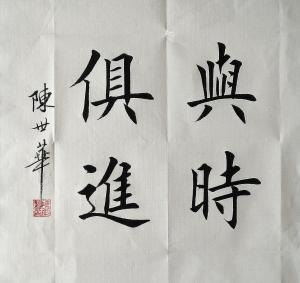 與時
俱進
陳世華